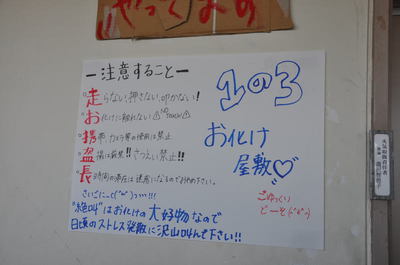 やってます
ー注意することー
走らない、押さない、叩かない!
おばけに触れない⚠NO TOUCH⚠
携帯、カメラ等の使用は禁止
盗撮は厳禁!!さつえい禁止!!
長時間の滞在は迷惑になるのでお控め下さい。
さいごにーc(゜^ω^゜)っ---!!!
"絶叫"はおばけの大好物なので
日頃のストレス発散に沢山叫んで下さい!!
1の3
お化け
屋敷♡
ごゆっくり
どーぞ
火気取締責任者